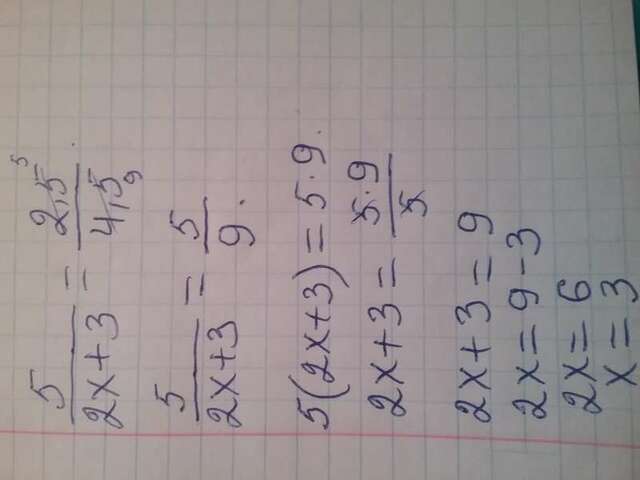 5/(2x+3) = 2,5/4,5 5 9
5/(2x+3) = 5/9.
5(2x+3) = 5·9.
2x+3 = 5·9/5
2x+3 = 9
2x = 9-3
2x = 6
x = 3